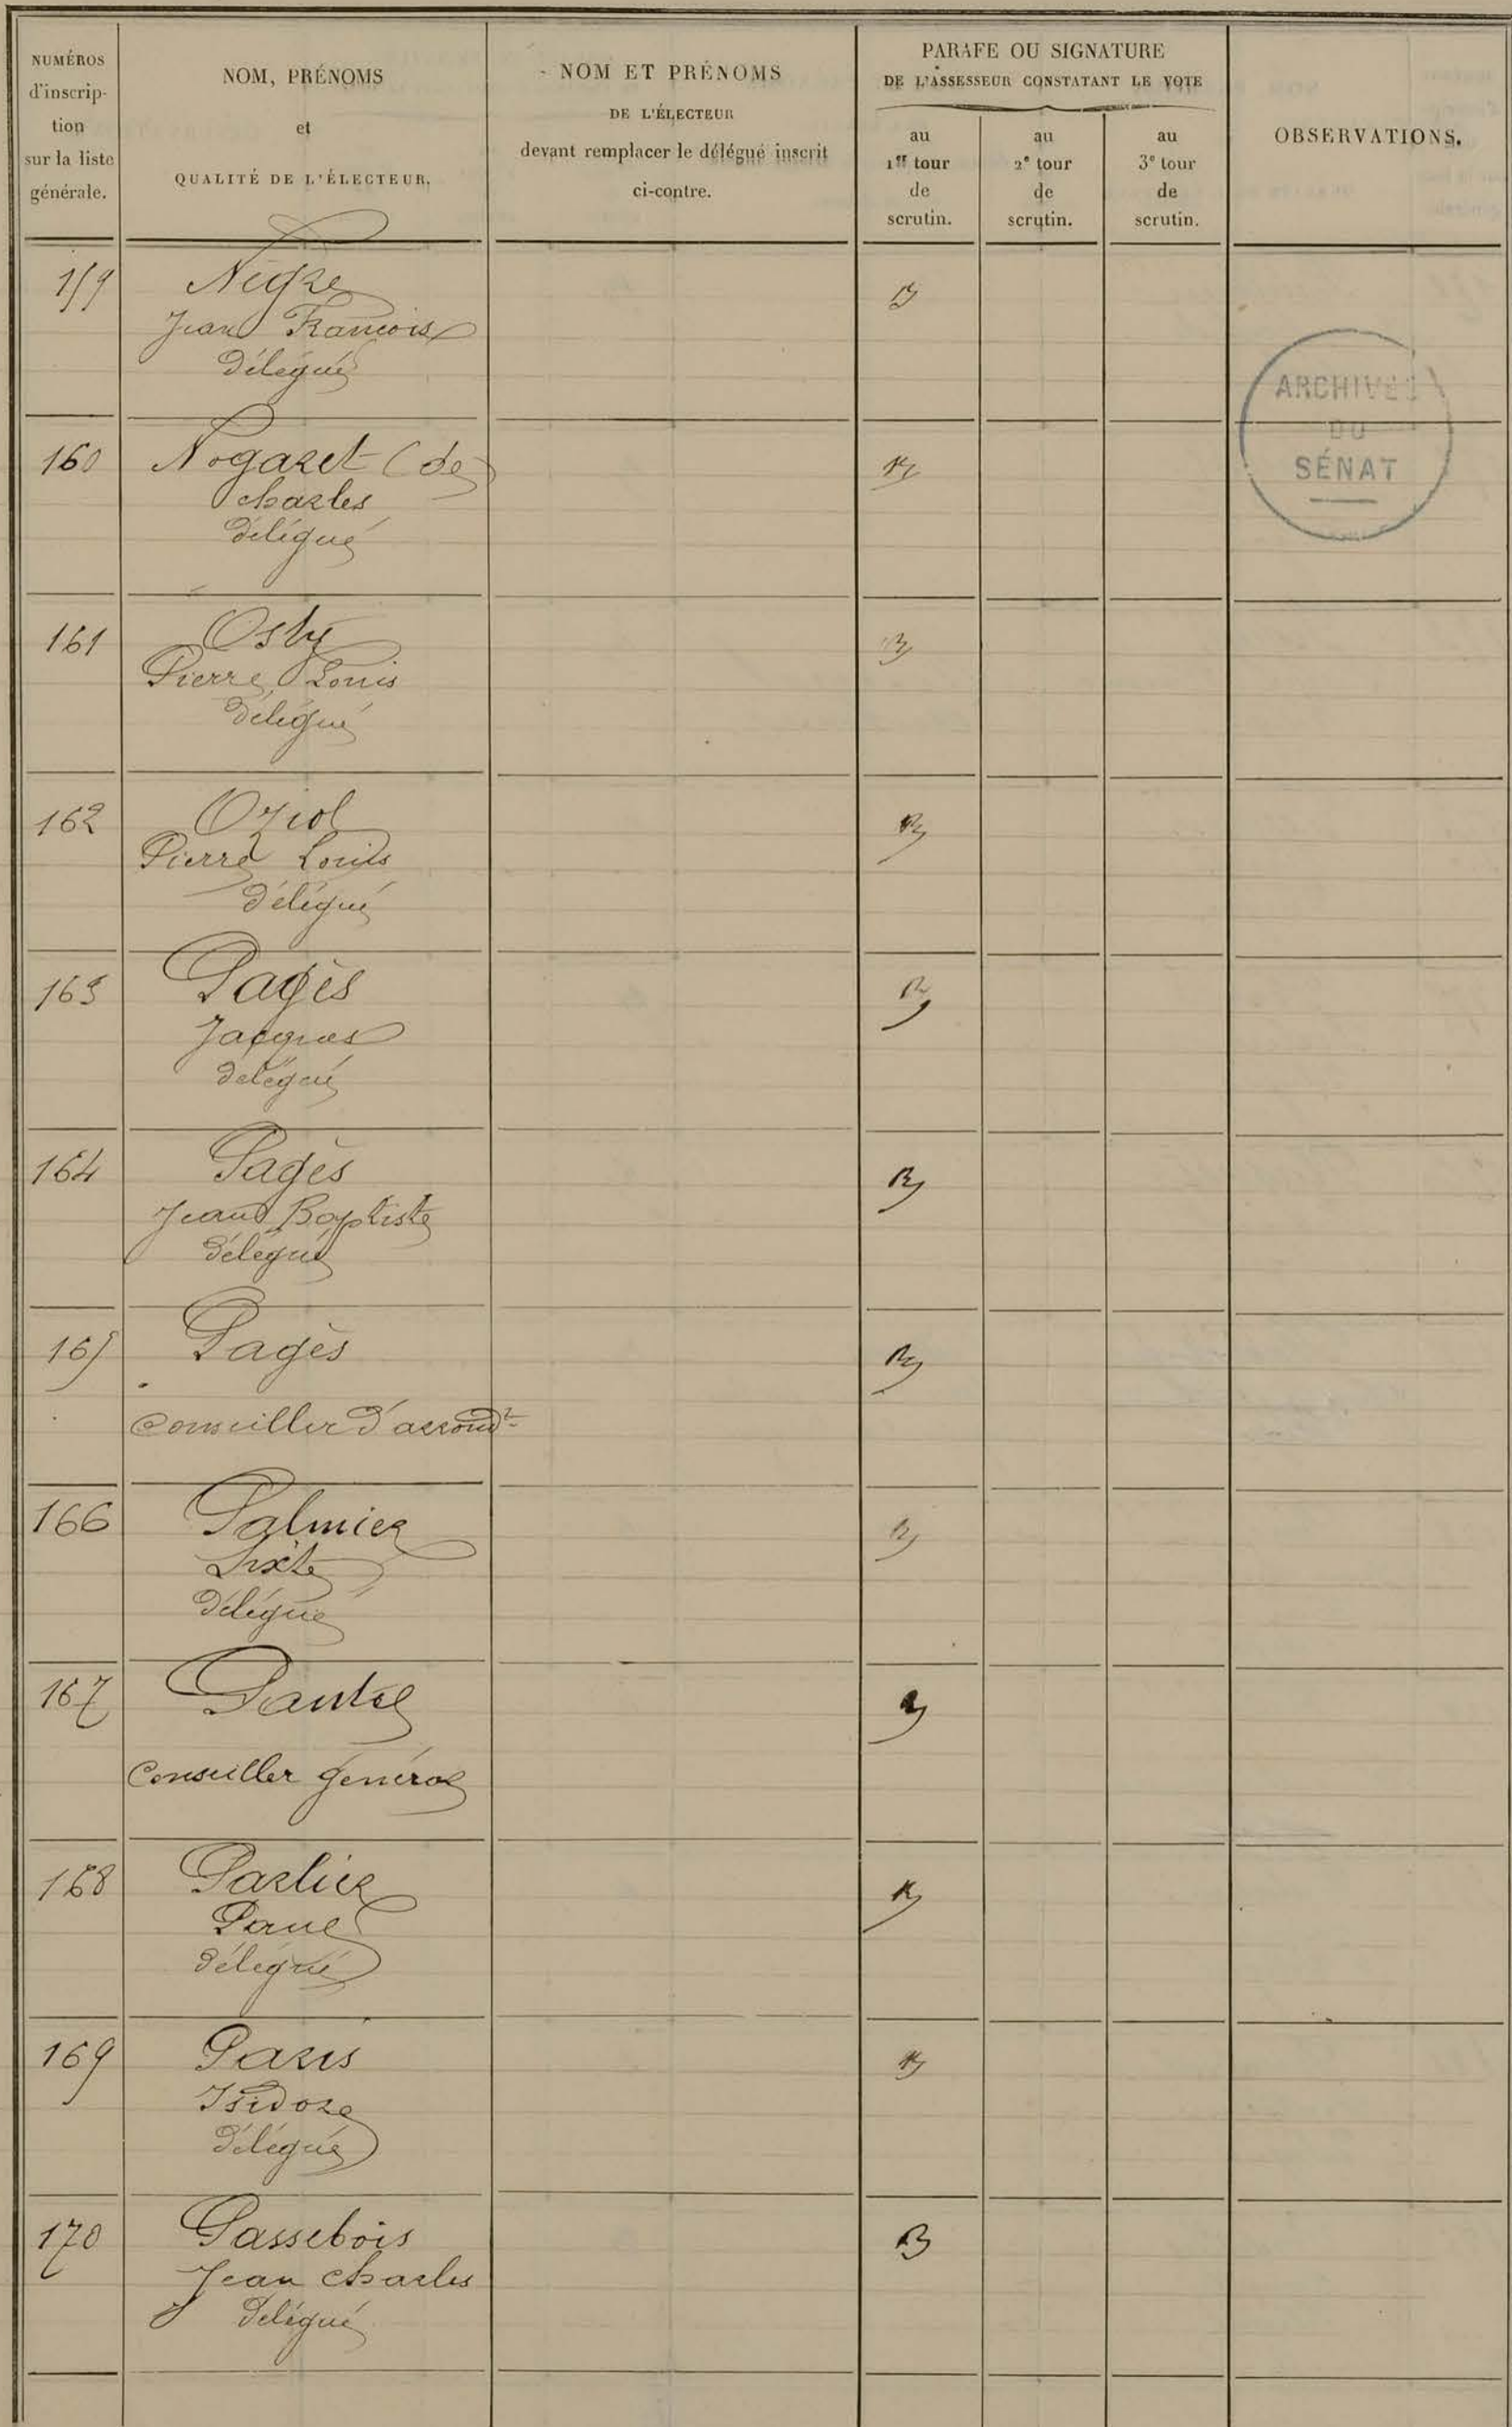 NUMÉROS
d'inscrip-
tion
sur la liste
générale.
NOM, PRÉNOMS
et
QUALITÉ DE L'ÉLECTEUR.
NOM ET PRÉNOMS
DE L'ÉLECTEUR
devant remplacer le délégué inscrit
ci-contre.
PARAFE OU SIGNATURE
DE L'ASSESSEUR CONSTATANT LE VOTE
au
1er tour
de
scrutin.
au
2e tour
de
scrutin.
au
3e tour
de
scrutin.
OBSERVATIONS.
159 Nègre
Jean François
Délégué
ARCHIVES
DU
SÉNAT
160 Nogaret (de
Charles
Délégué
161 Osty
Pierre Louis
Délégué
162 Oziol
Pierre Louis
délégué
163 Pagès
Jacques
délégué
164 Pagès
Jean Baptiste
délégué
165 Pagès
Conseiller d'arrondt
166 Palmier
Sixte
Délégué
167 Pantel
Conseiller général
168 Parlier
Paul
délégué
169 Paris
Isidore
délégué
170 Passebois
Jean Charles
délégué